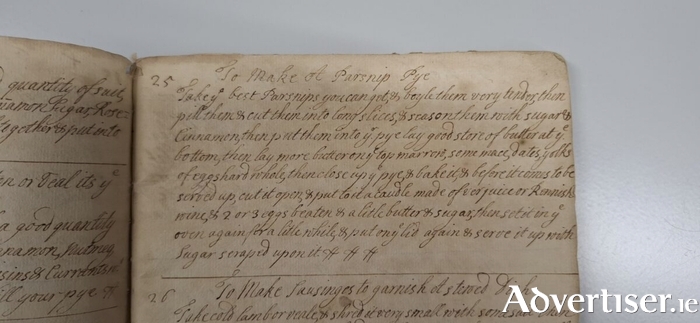 quantity of suet,
namon, Sugar, Rose
together & put into
en or Teal its yᵉ
a good quantity
nnamon, Nutmeg,
sins & Currents & wᵗ
ill your pye #
25 To Make A Parsnip Pye
Take yᵉ best Parsnips you can get, & boyle them very tender, then
pill them & cut them into long slices, & season them with sugar &
Cinnamon, then put them into yᵉ pye lay good store of butter at yᵉ
bottom, then lay more butter on yᵉ top marrow, some mace, dates, yolks
of eggs hard whole, then close up y pye, & bake it, & before it comes to be
served up, cut it open, & put to it a caudle made of verjuice or Rennish
wine, & 2 or 3 eggs beaten & a litle butter & sugar, then set it in yᵉ
oven again for a litle while, & put on yᵉ lid again & serve it up with
Sugar scrapid upon it # # #
26 To Make Sausinges to garnish A stewed Dish
Take cold lamb or veale, & shred it very small with some
Advertiser.ie